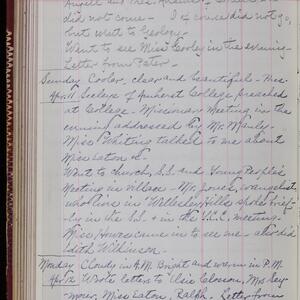 did not come - I of course did not go,
but went to Geology.
Went to see Miss Cooley in the evening.
Letter from Peter.
Sunday Cooler, clear and beautiful - Pres.
Apr. 11 of Amherst College, preached
at College. Missionary Meeting in the
evening addressed by Mr. Manley.
Miss Whiting talked to me about
Miss Eaton
Went to church, S.S. and Young People's
Meeting in village - Mr. Jones, evangelist
who live in Wellesley Hills spoke brief-
ly in the S.S. & in the Y.P.S. meeting.
Miss Hawes came in to see me - also did
Edith Wilkinson.
Monday Cloudy in A.M. Bright and warm in P.M.
Apr. 12 Wrote letters to Closson, Mrs.
Miss Eaton, Ralph. Letter from